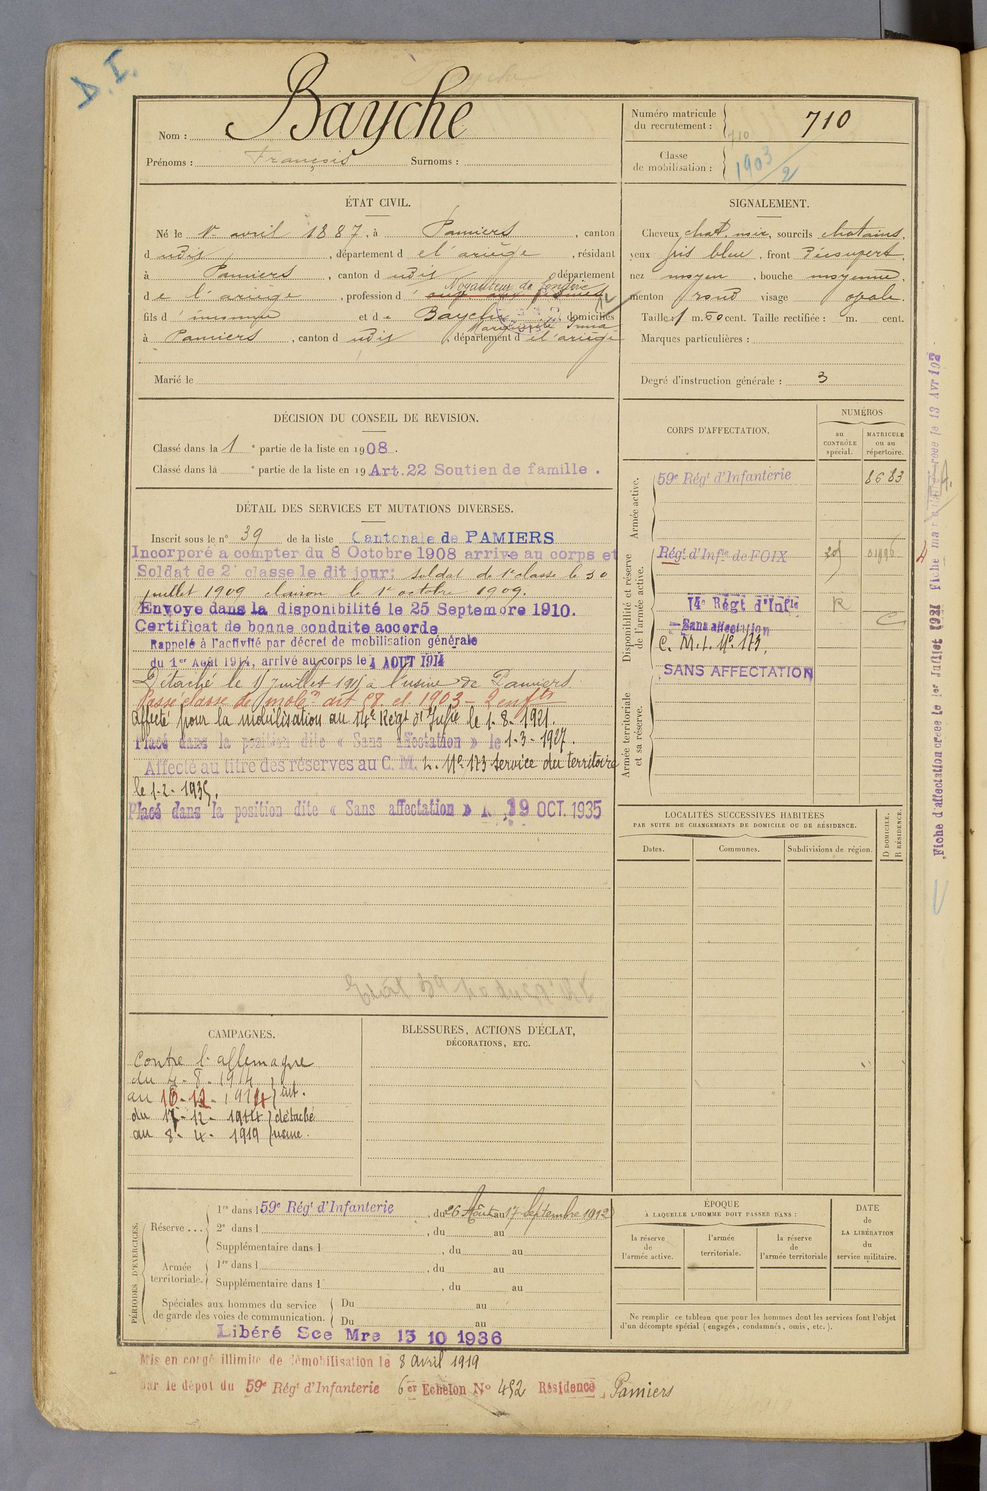 D. I.
Nom : Bayche
Prénoms : François Surnoms :
Numéro matricule du recrutement : 710
710
Classe de mobilisation : 1903/2
ÉTAT CIVIL.
Né le 1er avril 1887, à Pamiers, canton
d udis, département d e l'ariège, résidant
à Pamiers, canton d udis, département
Noyauteur de fonderie
d e l'ariège, profession d
fils d' inconnu et d e Bayche domiciliés
Marguerite Irma
à Pamiers, canton d udis, département d e l'ariège
Marié le
SIGNALEMENT.
Cheveux chat. noir, sourcils chatains,
yeux gris bleu, front Découvert,
nez moyen, bouche moyenne,
menton rond visage ovale.
Taille 1 m. 60 cent. Taille rectifiée : m. cent.
Marques particulières :
Degré d'instruction générale : 3
DÉCISION DU CONSEIL DE REVISION.
Classé dans la 1 e partie de la liste en 1908.
Classé dans la e partie de la liste en 19 Art. 22 Soutien de famille .
DÉTAIL DES SERVICES ET MUTATIONS DIVERSES.
Inscrit sous le n° 39 de la liste Cantonale de PAMIERS
Incorporé a compter du 8 Octobre 1908 arrive au corps et
Soldat de 2e classe le dit jour; soldat de 1e classe le 30
juillet 1909 clairon le 1er octobre 1909.
Envoye dans la disponibilité le 25 Septembre 1910.
Certificat de bonne conduite accorde
Rappelé à l'activité par décret de mobilisation générale
du 1er Août 1914, arrivé au corps le 4 AOUT 1914
Détaché le 17 juillet 1915 à l'usine de Pamiers
Passé classe de mobon art 58. et 1903 - 2 enfts
Affecté pour la mobilisation au 14e Régt d'Infie le 1-8-1921.
Placé dans la position dite « Sans affectation » le 1-3-1927.
Affecté au titre des réserves au C. M. I. N° 173 service du territoire
le 1-2-1935.
Placé dans la position dite « Sans affectation » 19 OCT. 1935
CORPS D'AFFECTATION.
NUMÉROS
au CONTRÔLE spécial.
MATRICULE ou au répertoire.
Armée active.
59e Régt d'Infanterie 8683
Disponibilité et réserve de l'armée active.
Régt d'Infie de FOIX
14e Régt d'Infie R
Sans affectation
C. M. I. N° 173.
SANS AFFECTATION
Armée territoriale et sa réserve.
LOCALITÉS SUCCESSIVES HABITÉES
PAR SUITE DE CHANGEMENTS DE DOMICILE OU DE RÉSIDENCE.
Dates. Communes. Subdivisions de région.
D DOMICILE.
R RÉSIDENCE.
CAMPAGNES.
Contre l'allemagne
du 4-8-1914
au 16-12-1914 } int.
du 17-12-1914 } détaché
au 8-4-1919 } usine.
BLESSURES, ACTIONS D'ÉCLAT,
DÉCORATIONS, ETC.
PÉRIODES D'EXERCICES.
Réserve...
1re dans l 59e Régt d'Infanterie, du 26 Août au 17 Septembre 1912
2e dans l , du au
Supplémentaire dans l , du au
Armée territoriale.
1re dans l , du au
Supplémentaire dans l , du au
Spéciales aux hommes du service de garde des voies de communication.
Du au
Du au
Libéré Sce Mre 15 10 1936
ÉPOQUE
À LAQUELLE L'HOMME DOIT PASSER DANS :
la réserve de l'armée active.
l'armée territoriale.
la réserve de l'armée territoriale
DATE de LA LIBÉRATION du service militaire.
Ne remplir ce tableau que pour les hommes dont les services font l'objet
d'un décompte spécial (engagés, condamnés, omis, etc.).
Mis en congé illimité de démobilisation le 8 avril 1919
par le dépot du 59e Régt d'Infanterie 6er Echelon N° 452 Résidence Pamiers
Fiche d'affectation créée le 1er Juillet 1931